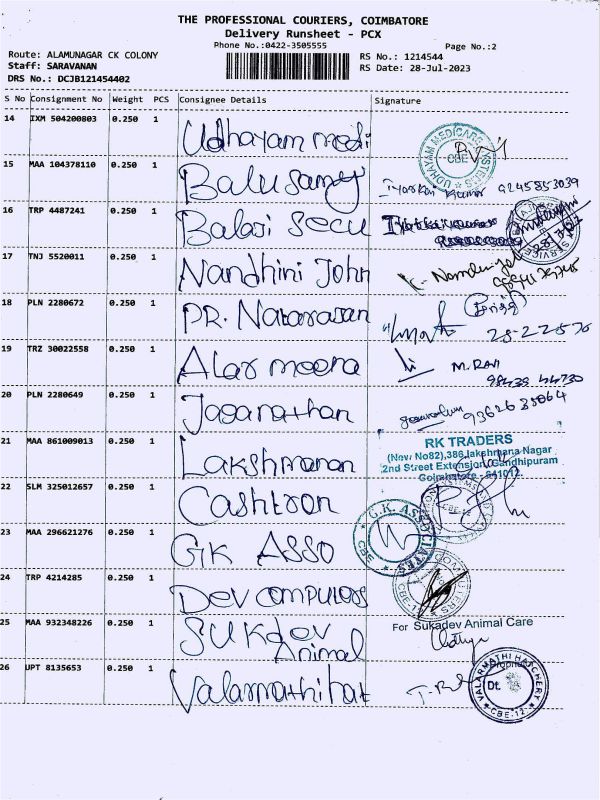 THE PROFESSIONAL COURIERS, COIMBATORE
Delivery Runsheet - PCX
Phone No.:0422-3505555 Page No.:2
Route: ALAMUNAGAR CK COLONY RS No.: 1214544
Staff: SARAVANAN RS Date: 28-Jul-2023
DRS No.: DCJB121454402
S No Consignment No Weight PCS Consignee Details Signature
14 IXM 504200803 0.250 1 Udhayam medi
UDHAYAM MEDICARE SYSTEMS CBE
15 MAA 104378110 0.250 1 Balusamy 9245853039
16 TRP 4487241 0.250 1 Balaji Secu
17 TNJ 5520011 0.250 1 Nandhini John
18 PLN 2280672 0.250 1 PR. Natarasan
19 TRZ 30022558 0.250 1 Alar meena M. RAVI
98439 44730
20 PLN 2280649 0.250 1 Jaganathan
21 MAA 861009013 0.250 1 Lakshmanan
RK TRADERS
(New No82),386,lakshmana Nagar
2nd Street Extension, Gandhipuram
Coimbatore - 641012.
22 SLM 325012657 0.250 1 Cashtron
23 MAA 296621276 0.250 1 GK ASSO
G.K. ASSOCIATES CBE
24 TRP 4214285 0.250 1 Dev computers
25 MAA 932348226 0.250 1 SUKdev Animal
For Sukadev Animal Care
26 UPT 8135653 0.250 1 Valarmathi hat
VALARMATHI HATCHERY Dt. CBE-12